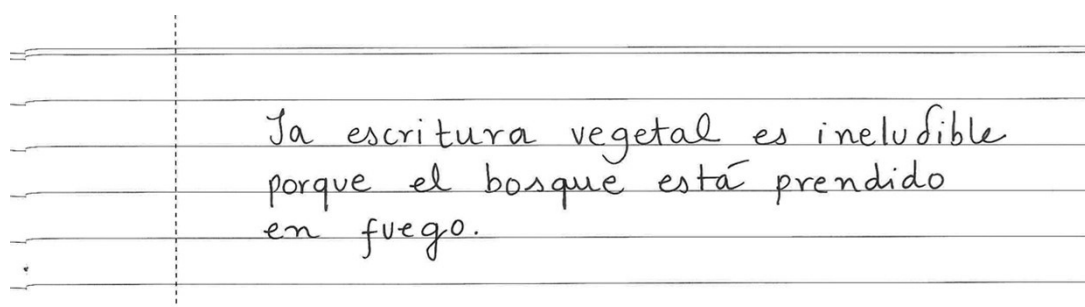 La escritura vegetal es ineludible
porque el bosque está prendido
en fuego.